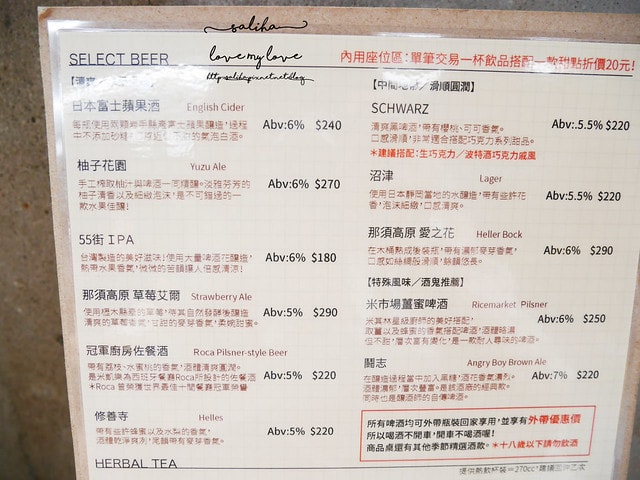 saliha
love my love
SELECT BEER
內用座位區：單筆交易一杯飲品搭配一款甜點折價20元！
日本富士蘋果酒 English Cider
Abv:6% $240
柚子花園 Yuzu Ale
手工榨取柚汁與啤酒一同釀。淡雅芬芳的
柚子清香以及細緻泡沫，是不可錯過的一
款水果佳釀！
Abv:6% $270
55街 IPA
台灣製造的美好滋味！使用大量啤酒花釀造，
熱帶水果香氣，微微的苦韻讓人倍感清涼！
Abv:6% $180
那須高原 草莓艾爾 Strawberry Ale
清爽的草莓香氣，甘甜的麥芽香氣，柔婉甜蜜。
Abv:5% $290
冠軍廚房佐餐酒 Roca Pilsner-style Beer
帶有荔枝、水蜜桃的香氣，酒體清爽圓潤。
是米凱樂為西班牙餐廳Roca所設計的佐餐酒
＊Roca 曾榮獲世界最佳十間餐廳冠軍榮譽
Abv:5% $220
修善寺 Helles
帶有些許蜂蜜以及水梨的香氣，
酒體乾淨爽冽，尾韻帶有麥芽香氣。
Abv:5% $220
HERBAL TEA
【中間地帶／滑順圓潤】
SCHWARZ
清爽黑啤酒，帶有櫻桃、可可香氣。
口感滑順，非常適合搭配巧克力系列甜品。
＊建議搭配：生巧克力／波特酒巧克力戚風
Abv:.5.5% $220
沼津 Lager
使用日本靜岡當地的水釀造，帶有些許花
香，泡沫細緻，口感清爽。
Abv:5.5% $220
那須高原 愛之花 Heller Bock
在木桶熟成後裝瓶，帶有濃郁麥芽香氣，
口感如絲綢般滑順，餘韻悠長。
Abv:6% $290
【特殊風味／酒鬼推薦】
米市場薑蜜啤酒 Ricemarket Pilsner
米其林星級廚師的美好搭配，
Abv:6% $250
鬪志 Angry Boy Brown Ale
在釀造過程當中加入黑糖，酒花香氣濃烈。
酒體濃郁，層次豐富。是該酒廠的經典款。
同時也是釀酒師的自傳啤酒。
Abv:7% $220
所有啤酒均可外帶瓶裝回家享用，並享有外帶優惠價
所以喝酒不開車，開車不喝酒喔！
商品桌還有其他季節精選酒款。＊十八歲以下請勿飲酒